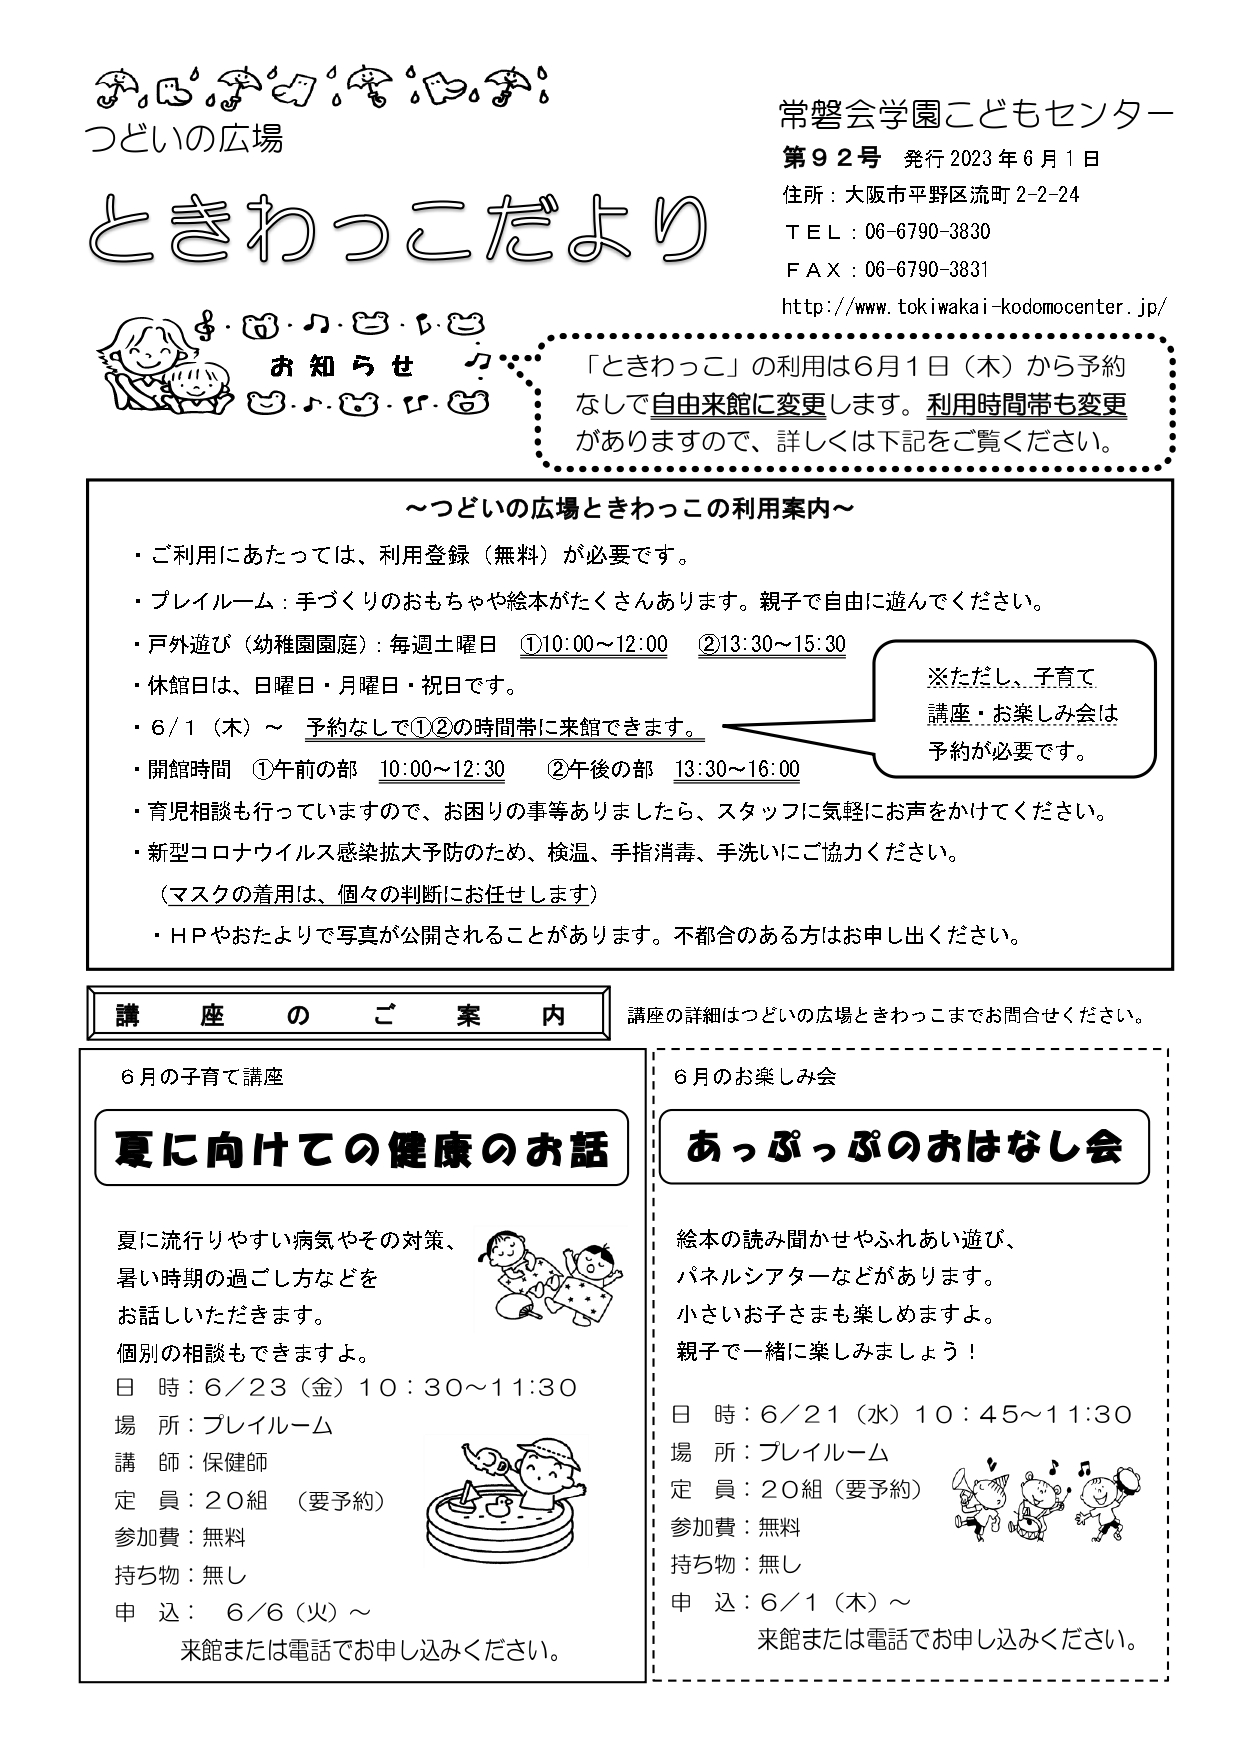 つどいの広場
ときわっこだより
常磐会学園こどもセンター
第９２号　発行 2023 年 6 月 1 日
住所：大阪市平野区流町 2-2-24
ＴＥＬ：06-6790-3830
ＦＡＸ：06-6790-3831
http://www.tokiwakai-kodomocenter.jp/
お知らせ
「ときわっこ」の利用は６月１日（木）から予約
なしで自由来館に変更します。利用時間帯も変更
がありますので、詳しくは下記をご覧ください。
～つどいの広場ときわっこの利用案内～
・ご利用にあたっては、利用登録（無料）が必要です。
・プレイルーム：手づくりのおもちゃや絵本がたくさんあります。親子で自由に遊んでください。
・戸外遊び（幼稚園園庭）：毎週土曜日　①10:00～12:00　②13:30～15:30
・休館日は、日曜日・月曜日・祝日です。
・６/１（木）～　予約なしで①②の時間帯に来館できます。
※ただし、子育て
講座・お楽しみ会は
予約が必要です。
・開館時間　①午前の部　10:00～12:30　　②午後の部　13:30～16:00
・育児相談も行っていますので、お困りの事等ありましたら、スタッフに気軽にお声をかけてください。
・新型コロナウイルス感染拡大予防のため、検温、手指消毒、手洗いにご協力ください。
（マスクの着用は、個々の判断にお任せします）
・ＨＰやおたよりで写真が公開されることがあります。不都合のある方はお申し出ください。
講座のご案内
講座の詳細はつどいの広場ときわっこまでお問合せください。
６月の子育て講座
夏に向けての健康のお話
夏に流行りやすい病気やその対策、
暑い時期の過ごし方などを
お話しいただきます。
個別の相談もできますよ。
日　時：６／２３（金）１０：３０～１１:３０
場　所：プレイルーム
講　師：保健師
定　員：２０組　（要予約）
参加費：無料
持ち物：無し
申　込：　６／６（火）～
来館または電話でお申し込みください。
６月のお楽しみ会
あっぷっぷのおはなし会
絵本の読み聞かせやふれあい遊び、
パネルシアターなどがあります。
小さいお子さまも楽しめますよ。
親子で一緒に楽しみましょう！
日　時：６／２１（水）１０：４５～１１:３０
場　所：プレイルーム
定　員：２０組（要予約）
参加費：無料
持ち物：無し
申　込：６／１（木）～
来館または電話でお申し込みください。